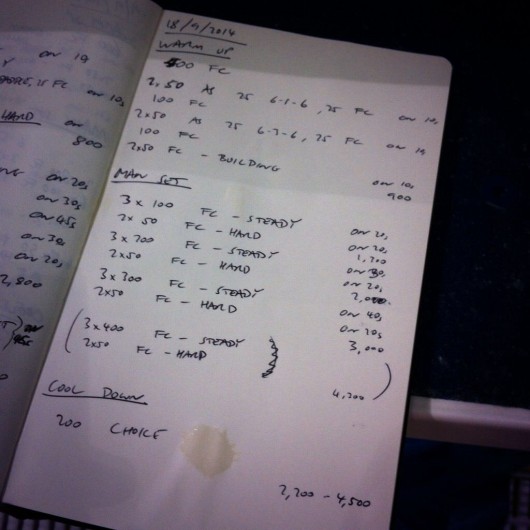 on 19
on 10s
HARD
on
800
on 20s
on 30s
on 45s
on 30s
on 20s
2,800
18/9/2014
WARM UP
400 FC
2x50 AS 25 6-1-6, 25 FC on 10s
100 FC
2x50 AS 25 6-3-6, 25 FC on 10s
100 FC
2x50 FC - BUILDING on 10s
900
MAIN SET
3 x 100 FC - STEADY on 20s
2x 50 FC - HARD on 20s
1,300
3 x 200 FC - STEADY on 30s
2x50 FC - HARD on 20s
2,000
3 x 300 FC - STEADY on 40s
2x50 FC - HARD on 20s
3,000
(3x400 FC - STEADY
2x50 FC - HARD
4,300)
COOL DOWN
200 CHOICE
3,200 - 4,500